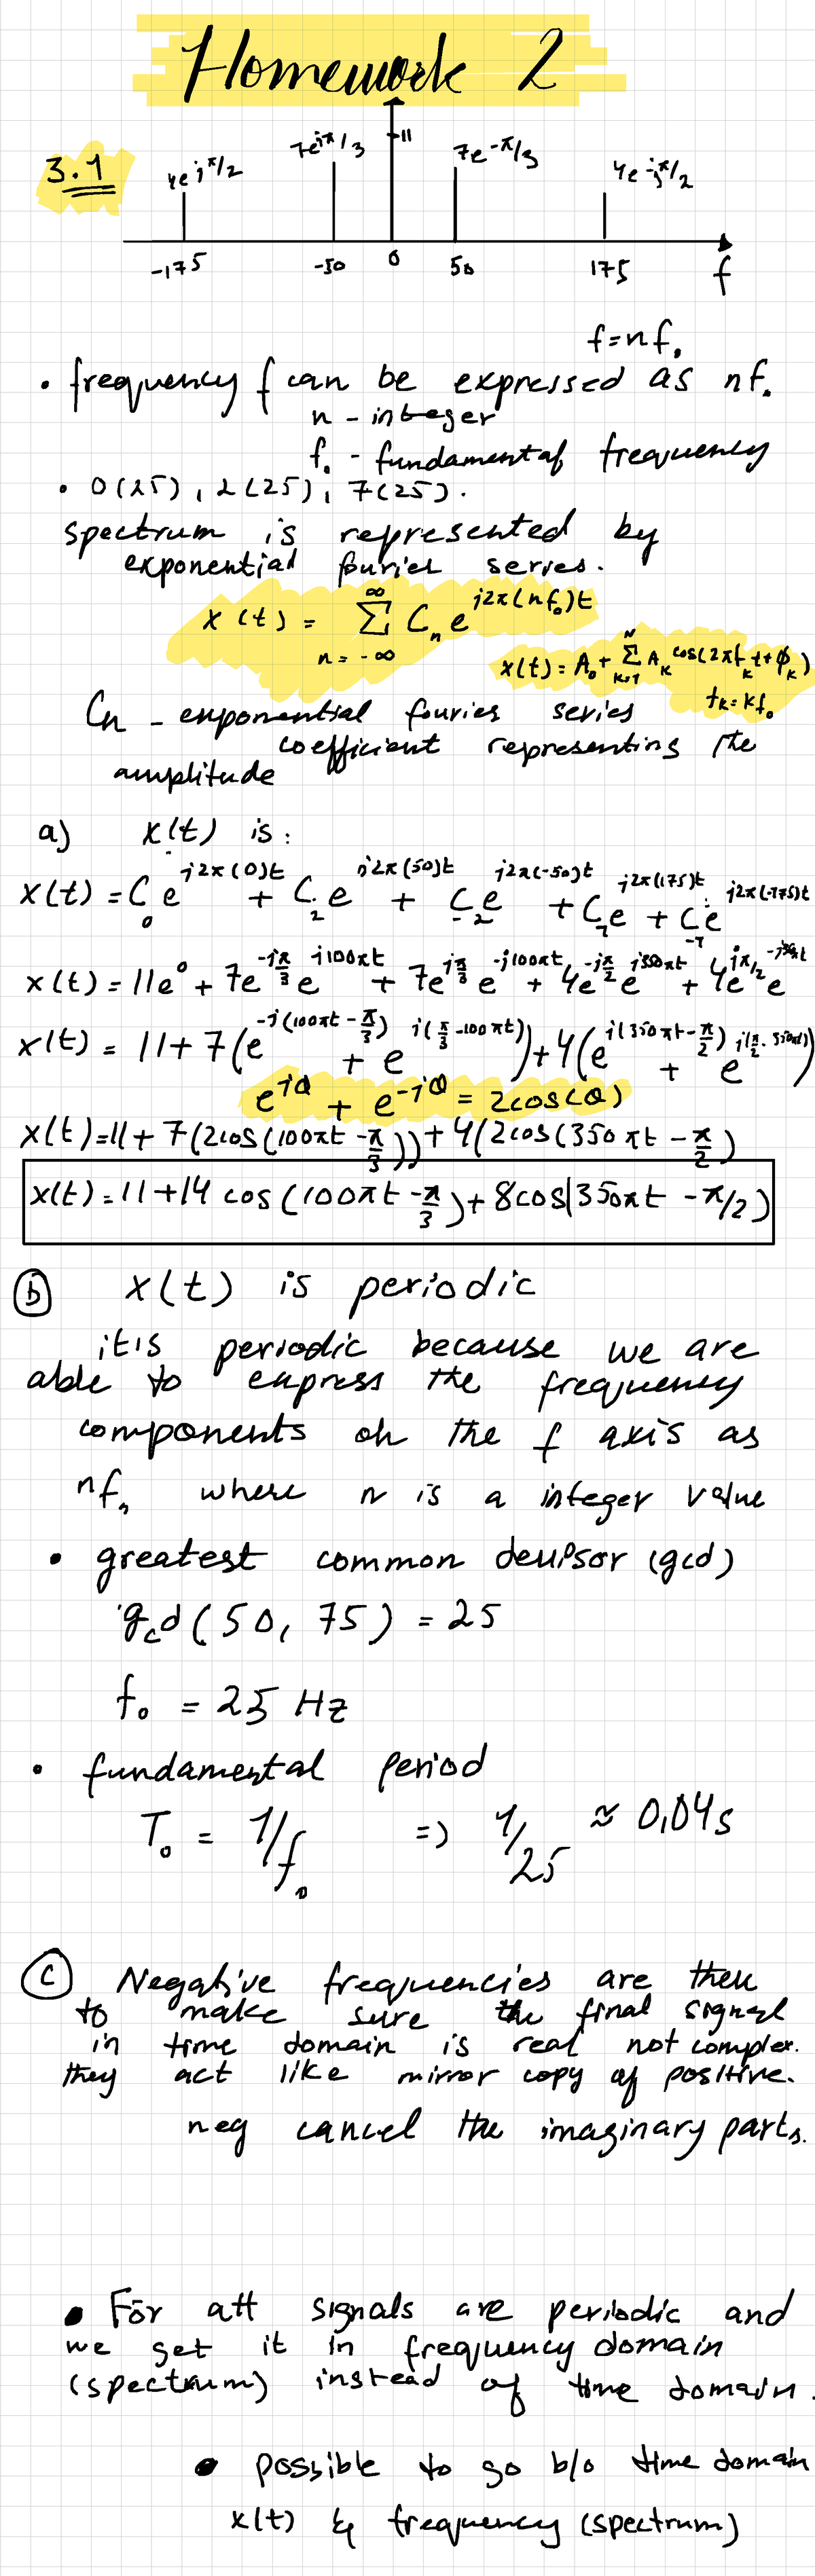 Homework 2
3.1
4e^{jπ/2} 7e^{jπ/3} 11 7e^{-π/3} 4e^{-jπ/2}
-175 -50 0 50 175 f
f=nf₀
• frequency f can be expressed as nf₀
n - integer
f₀ - fundamental frequency
• 0(25), 2(25), 7(25).
spectrum is represented by
exponential fourier series.
x(t) = ∑_{n=-∞}^{∞} Cₙ e^{j2π(nf₀)t}
x(t) = A₀ + ∑_{k=1}^{N} A_k cos(2πf_k t + ϕ_k)
f_k = kf₀
Cn - exponential fouries series
coefficient representing the
amplitude
a) x(t) is:
x(t) = C₀e^{j2π(0)t} + C₂e^{j2π(50)t} + C₋₂e^{j2π(-50)t} + C₇e^{j2π(175)t} + C₋₇e^{j2π(-175)t}
x(t) = 11e⁰ + 7e^{-jπ/3} e^{j100πt} + 7e^{jπ/3} e^{-j100πt} + 4e^{-jπ/2} e^{j350πt} + 4e^{jπ/2} e^{-j350πt}
x(t) = 11 + 7(e^{-j(100πt - π/3)} + e^{j(π/3 - 100πt)}) + 4(e^{j(350πt - π/2)} + e^{j(π/2 - 350πt)})
e^{jθ} + e^{-jθ} = 2cos(θ)
x(t) = 11 + 7(2cos(100πt - π/3)) + 4(2cos(350πt - π/2)
x(t) = 11 + 14 cos(100πt - π/3) + 8cos(350πt - π/2)
b x(t) is periodic
it is periodic because we are
able to express the frequency
components on the f axis as
nf₀ where n is a integer value
• greatest common devisor (gcd)
gcd(50, 75) = 25
f₀ = 25 Hz
• fundamental period
T₀ = 1/f₀ => 1/25 ≈ 0,04s
c Negative frequencies are then
to make sure the final signal
in time domain is real not complex.
they act like mirror copy of positive.
neg cancel the imaginary parts.
• For att signals are periodic and
we get it in frequency domain
(spectrum) instead of time domain.
• possible to go b/o time domain
x(t) & frequency (spectrum)